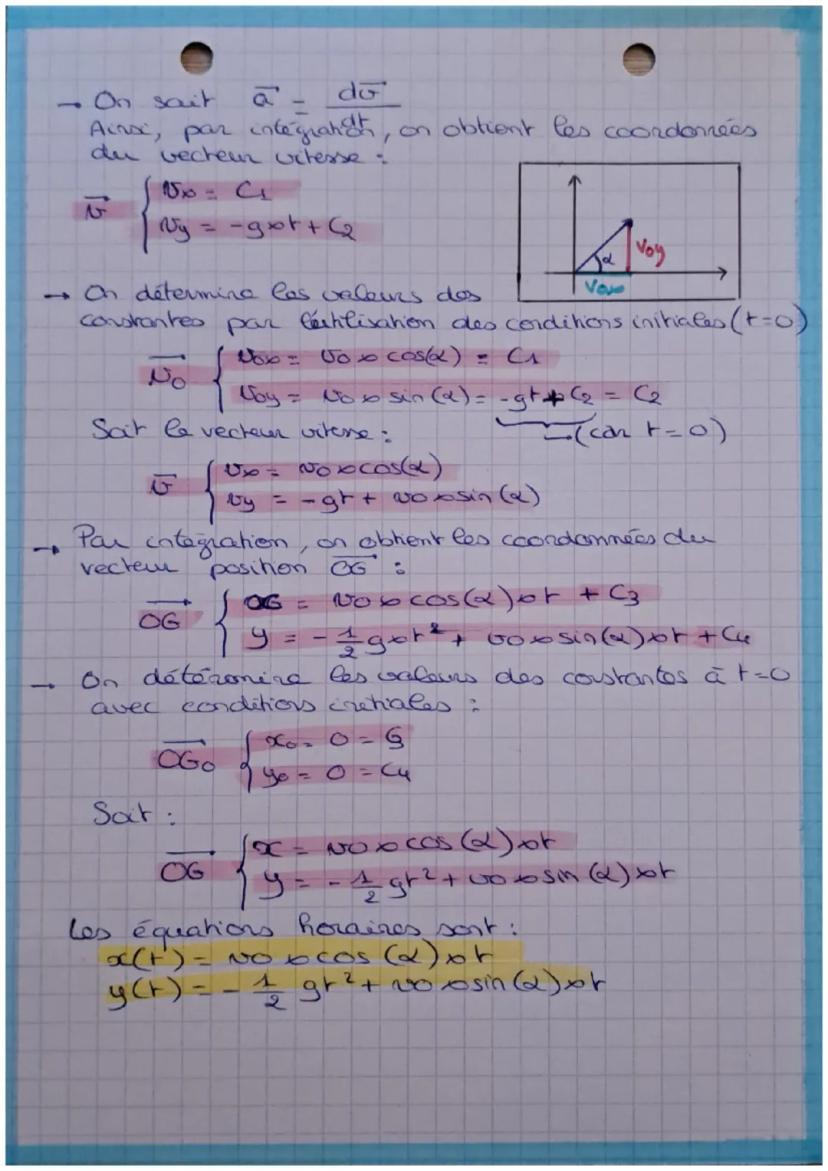 → On sait a⃗ = dv⃗/dt
Ainsi, par intégration, on obtient les coordonnées
du vecteur vitesse :
v⃗ { vx = C1
vy = -g×t + C2
α
Voy
Vox
→ On détermine les valeurs des
constantes par l'utilisation des conditions initiales (t=0)
v₀⃗ { vox = v0 × cos(α) = C1
voy = v0 × sin(α) = -gt + C2 = C2
Soit le vecteur vitesse : (car t=0)
v⃗ { vx = v0 × cos(α)
vy = -gt + v0 × sin(α)
→ Par intégration, on obtient les coordonnées du
vecteur position OG⃗ :
OG⃗ { OG = v0 × cos(α) × t + C3
y = -1/2 g×t² + v0 × sin(α) × t + C4
→ On détermine les valeurs des constantes à t=0
avec conditions initiales :
OG₀⃗ { x0 = 0 = C3
y0 = 0 = C4
Soit :
OG⃗ { x = v0 × cos(α) × t
y = -1/2 gt² + v0 × sin(α) × t
Les équations horaires sont :
x(t) = v0 × cos(α) × t
y(t) = -1/2 gt² + v0 × sin(α) × t